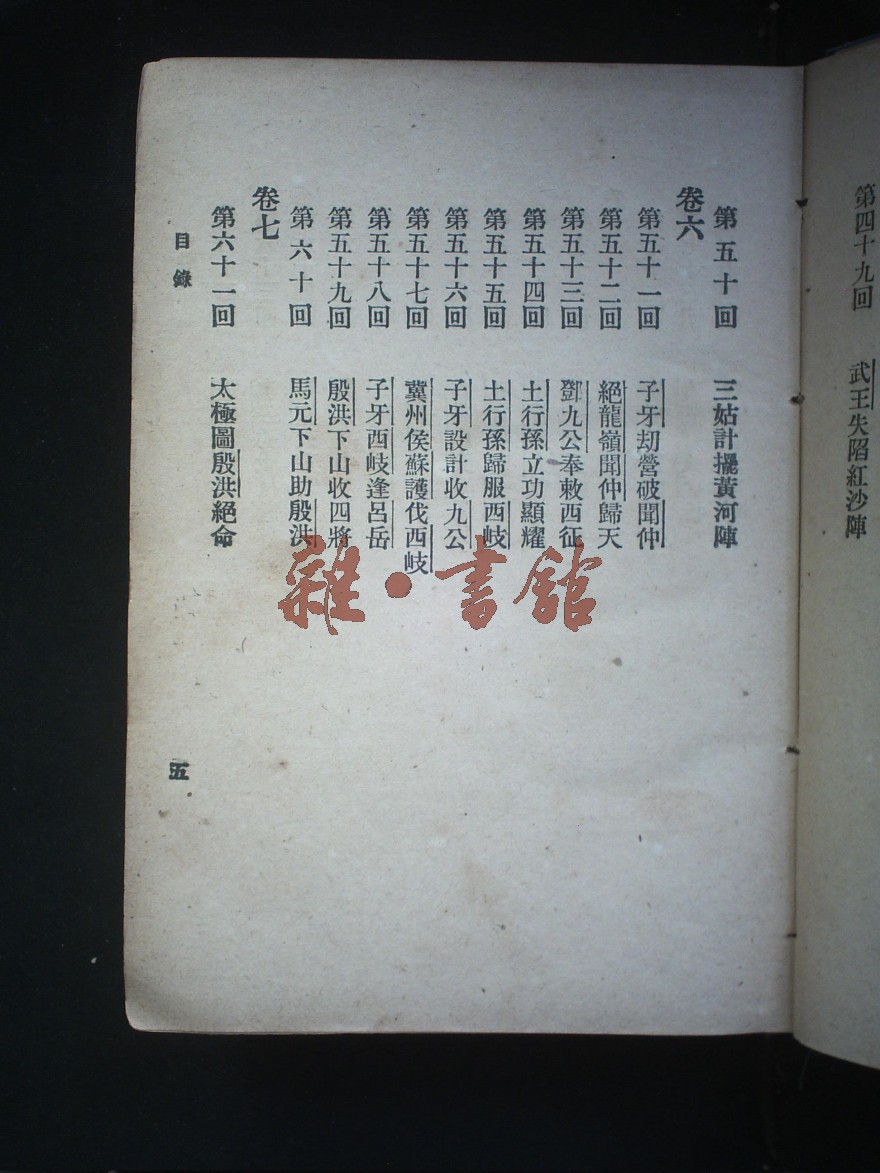 第四十九回 武王失陷紅沙陣
第五十回 三姑計擺黃河陣
卷六
第五十一回 子牙刧營破聞仲
第五十二回 絕龍嶺聞仲歸天
第五十三回 鄧九公奉敕西征
第五十四回 土行孫立功顯耀
第五十五回 土行孫歸服西岐
第五十六回 子牙設計收九公
第五十七回 冀州侯蘇護伐西岐
第五十八回 子牙西岐逢呂岳
第五十九回 殷洪下山收四將
第六十回 馬元下山助殷洪
卷七
第六十一回 太極圖殷洪絕命
目錄
五
雜·書館